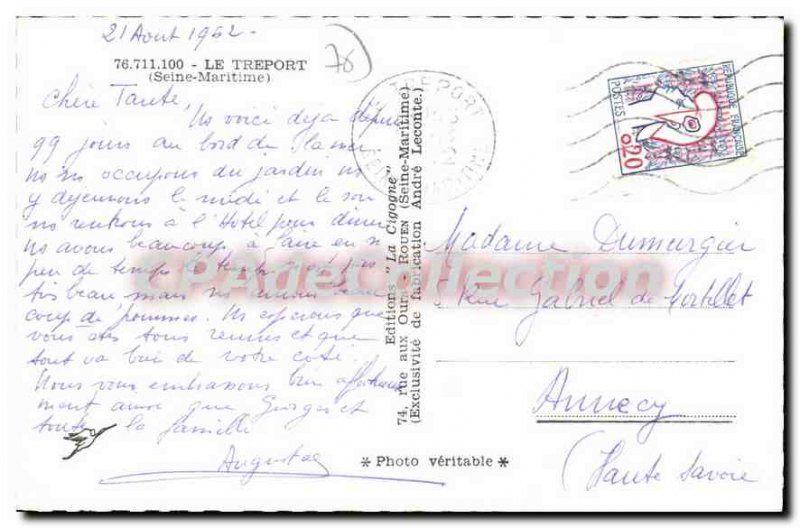 21 Aout 1962.
76.711.100 - LE TREPORT
(Seine-Maritime)
76
Chère Tante,
Ns voici déja depuis
99 jours au bord de la mer
ns ns occupons du jardin ns
y dejeunons le midi et le soir
ns rentrons à l'Hotel pour diner
Ns avons beaucoup à faire en si
peu de temps le temps pas
tis beau mais ns avons beau
coup de pommes. Ns esperons que
vous êtes tous reunis et que
tout va bien de votre coté.
Nous vous embrassons bien affectueuse
ment ainsi que Georges et
toute la famille
Augusta
TREPORT
SEINE MARITIME
REPUBLIQUE FRANCAISE
POSTES
0,20
Editions "La Cigogne"
74, rue aux Ours - ROUEN (Seine-Maritime)
(Exclusivité de fabrication André Leconte.)
* Photo véritable *
Madame Dumurgier
Rue Gabriel de Mortillet
Annecy
(Haute Savoie
CPAdeCollection.com